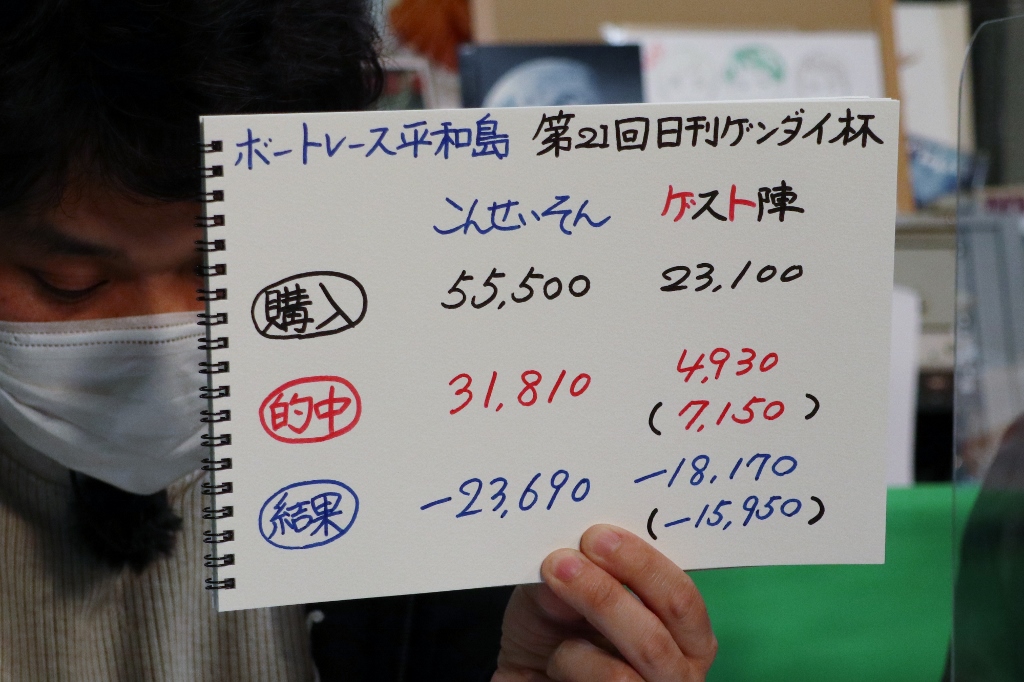 ボートレース平和島 第21回日刊ゲンダイ杯
こんせいそん ゲスト陣
購入 55,500 23,100
的中 31,810 4,930
(7,150)
結果 -23,690 -18,170
(-15,950)